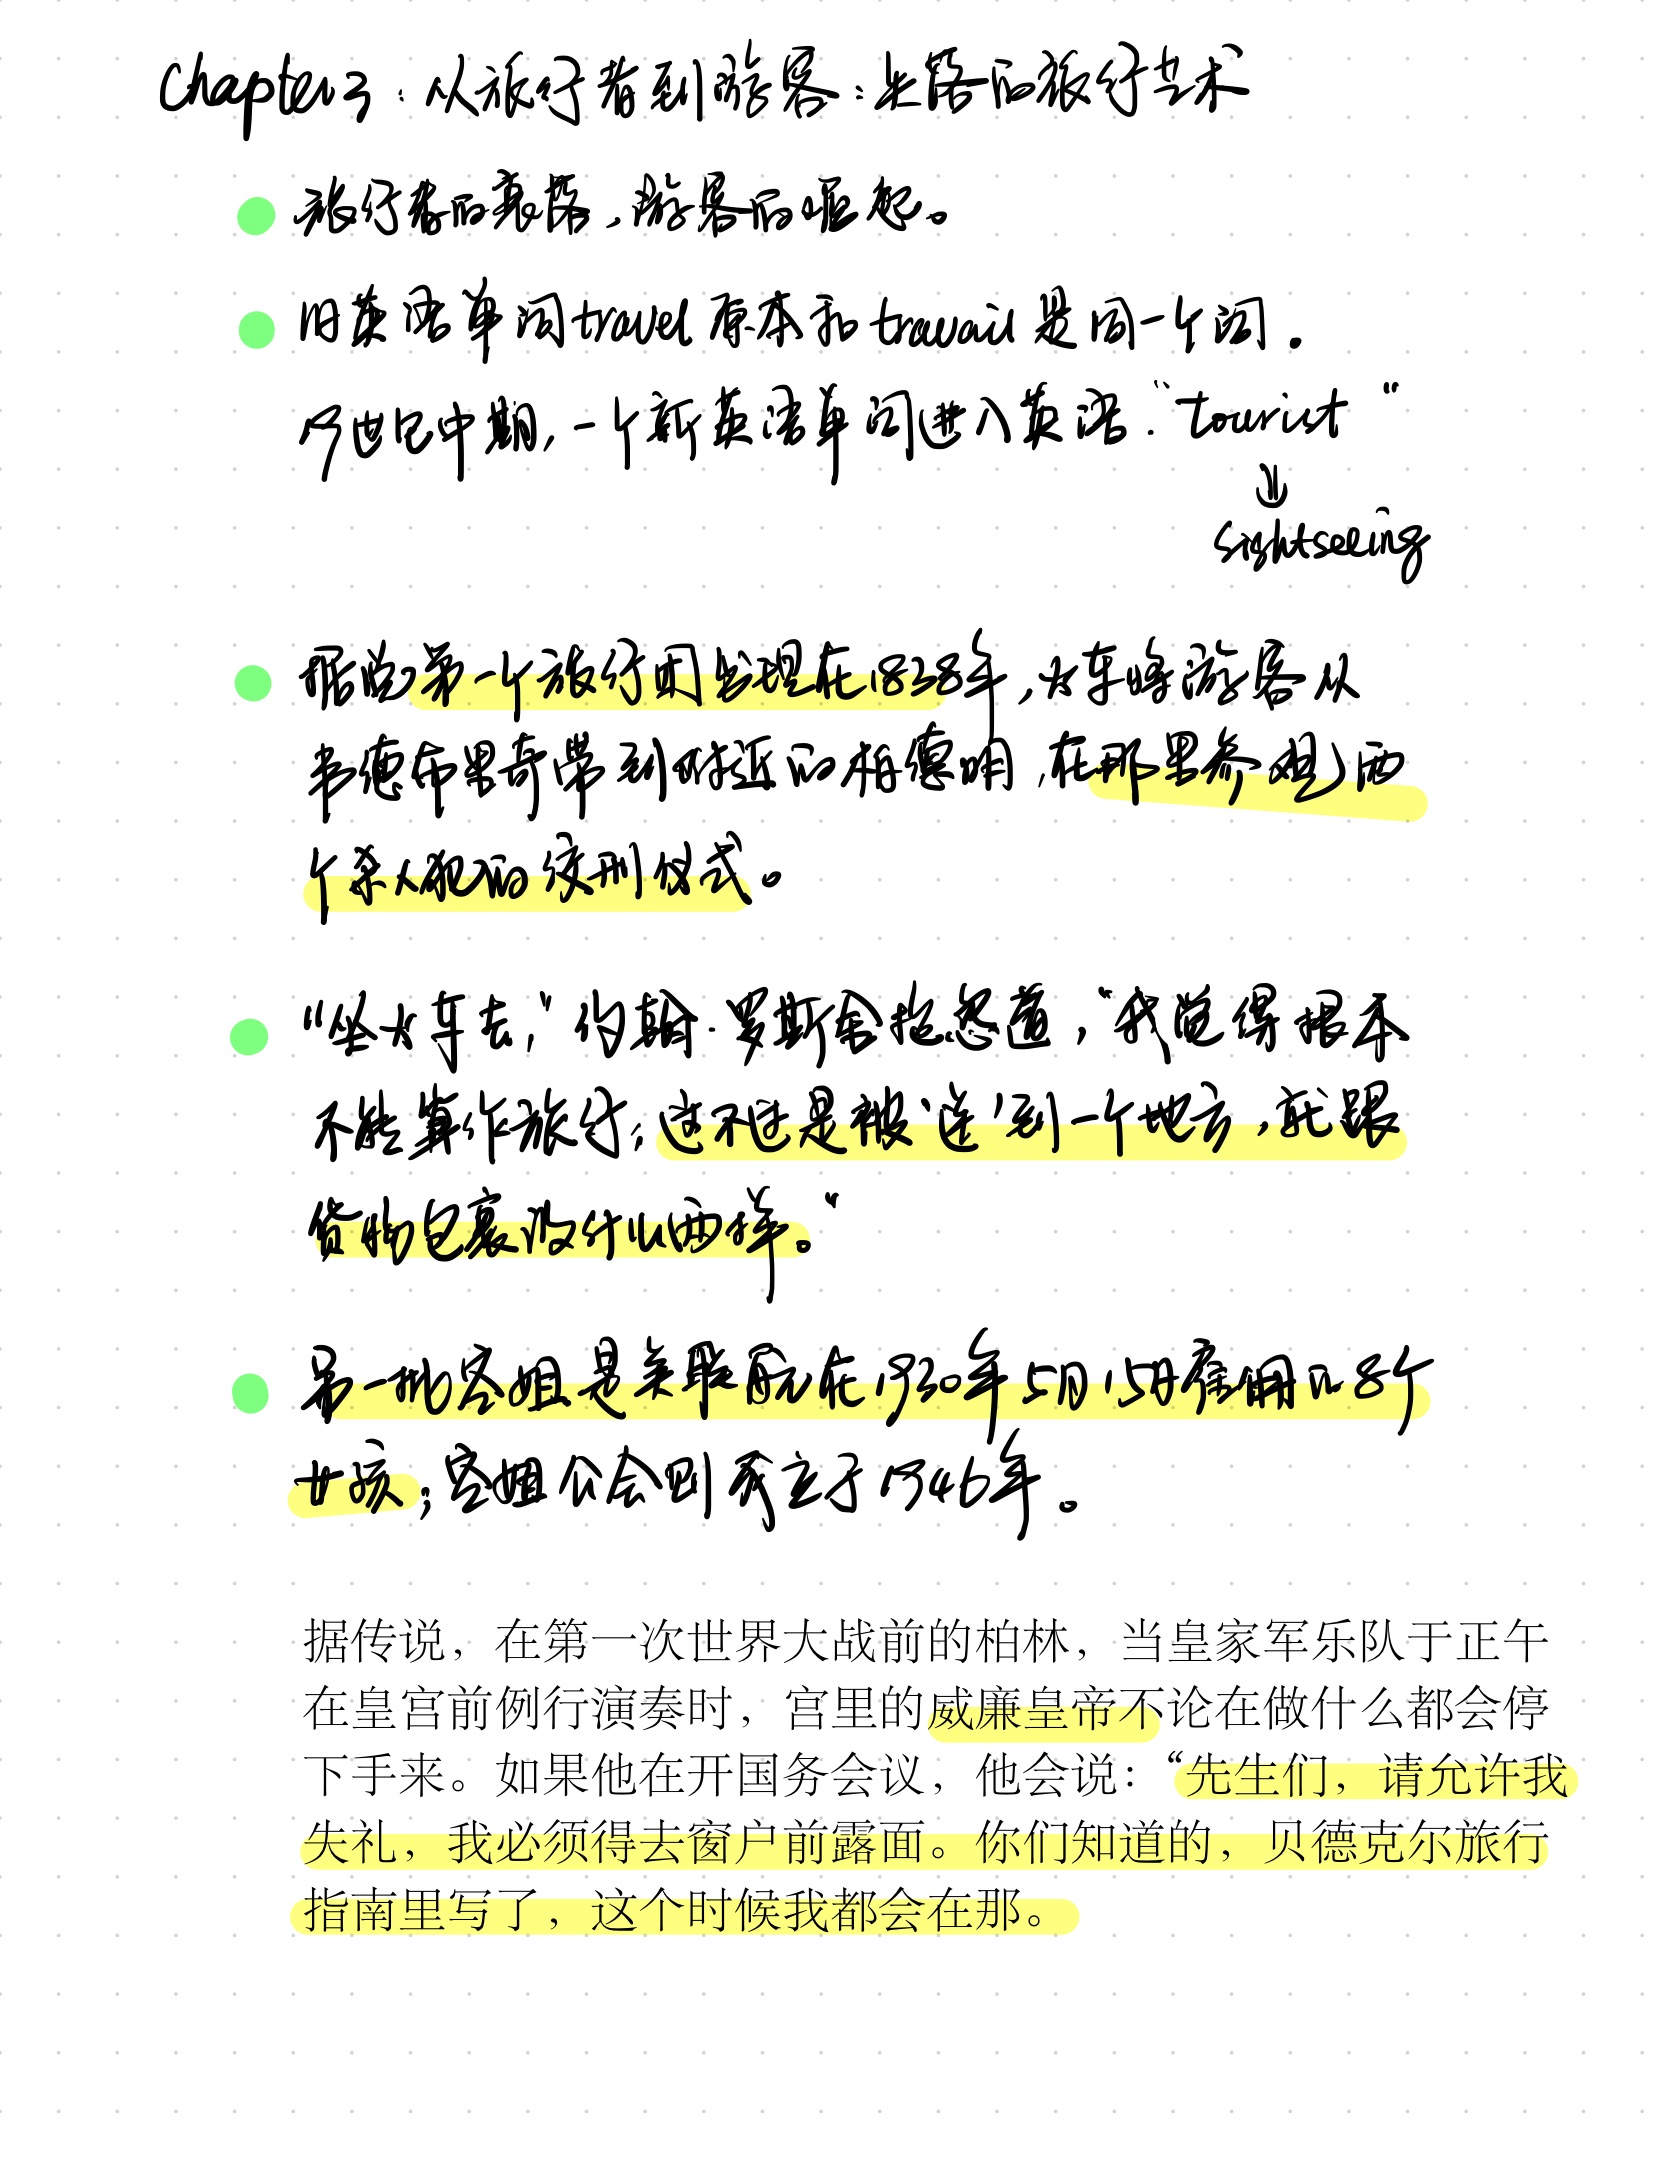 Chapter 3：从旅行者到游客：失落的旅行艺术
旅行者的衰落，游客的崛起。
旧英语单词travel原本和travail是同一个词．
19世纪中期，一个新英语单词进入英语：“tourist”
⇓
sightseeing
据说第一个旅行团出现在1838年，火车将游客从
韦德布里奇带到附近的柏德明，在那里参观两
个杀人犯的绞刑仪式。
“坐火车去，”约翰·罗斯金抱怨道，“我觉得根本
不能算作旅行；这不过是被‘送’到一个地方，就跟
货物包裹没什么两样。”
第一批空姐是美联航在1930年5月15日雇佣的8个
女孩；空姐公会则成立于1946年。
据传说，在第一次世界大战前的柏林，当皇家军乐队于正午
在皇宫前例行演奏时，宫里的威廉皇帝不论在做什么都会停
下手来。如果他在开国务会议，他会说：“先生们，请允许我
失礼，我必须得去窗户前露面。你们知道的，贝德克尔旅行
指南里写了，这个时候我都会在那。